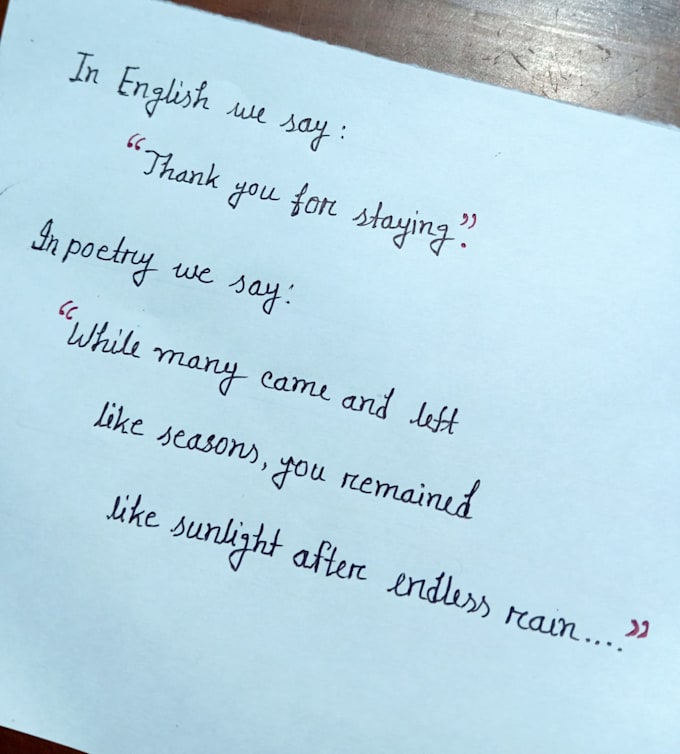 In English we say:
“Thank you for staying.”
In poetry we say:
“While many came and left
like seasons, you remained
like sunlight after endless rain....”